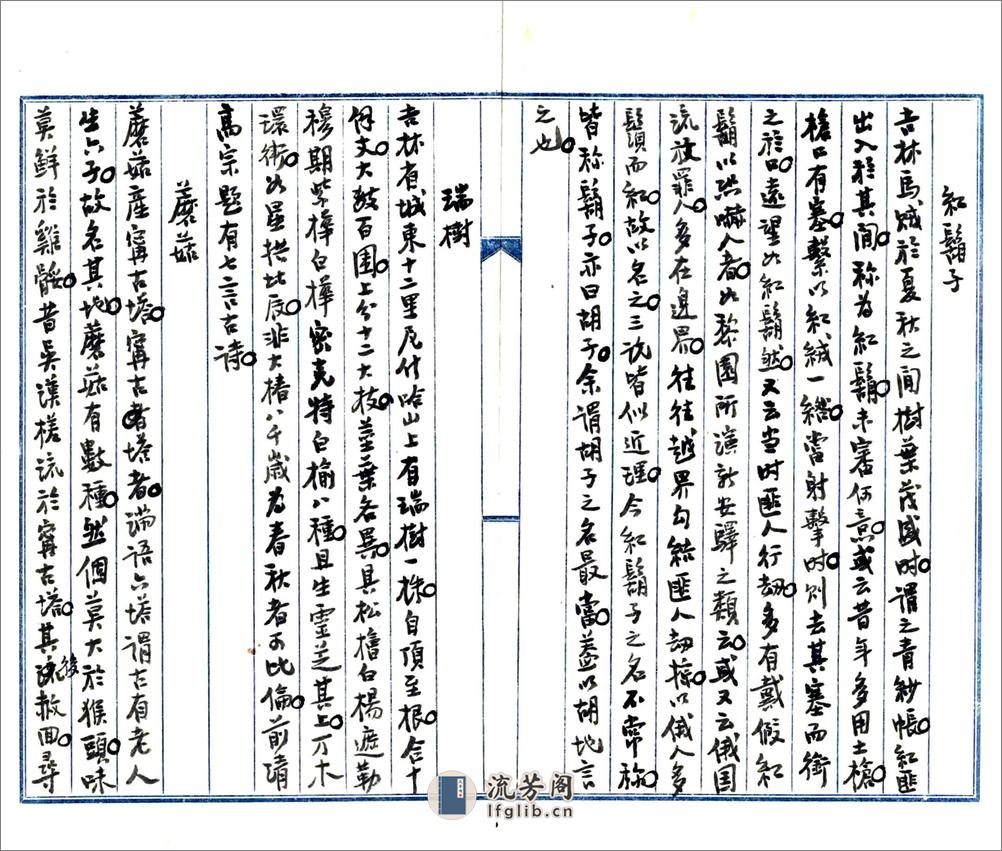 紅鬍子
吉林馬賊於夏秋之間樹葉茂盛時謂之青紗帳紅匪
出入於其間称為紅鬍未審何意或云昔年多用土槍
槍口有塞繫以紅絨一綹當射擊时則去其塞而銜
之於口遠望如紅鬍然又云当时匪人行刼多有戴假紅
鬍以此嚇人者如黎園所演新安驛之類云或又云俄国
流放罪人多在边界往往越界勾結匪人刼掠以俄人多
鬚而紅故以名之三説皆似近理今紅鬍子之名不常称
皆称鬍子亦曰胡子余谓胡子之名最當盖以胡地言
之也
瑞樹
吉林有城東十二里尼什哈山上有瑞樹一株自頂至根合十
餘丈大数百圍上分十二大枝莖葉各異具松檜白楊遮勒
穆期紫樺白樺密克特白榆八種且生雲芝其上万木
環衛如星拱北辰非大椿八千歲為春秋者可比倫前清
高宗題有七言古诗
蘑菇
蘑菇產寗古塔寗古者塔者满语六塔谓古有老人
生六子故名其地蘑菇有數種然個莫大於猴頭味
莫鮮於雞䯝昔吴漢槎流於寗古塔其後赦回尋
流芳阁
lfglib.cn